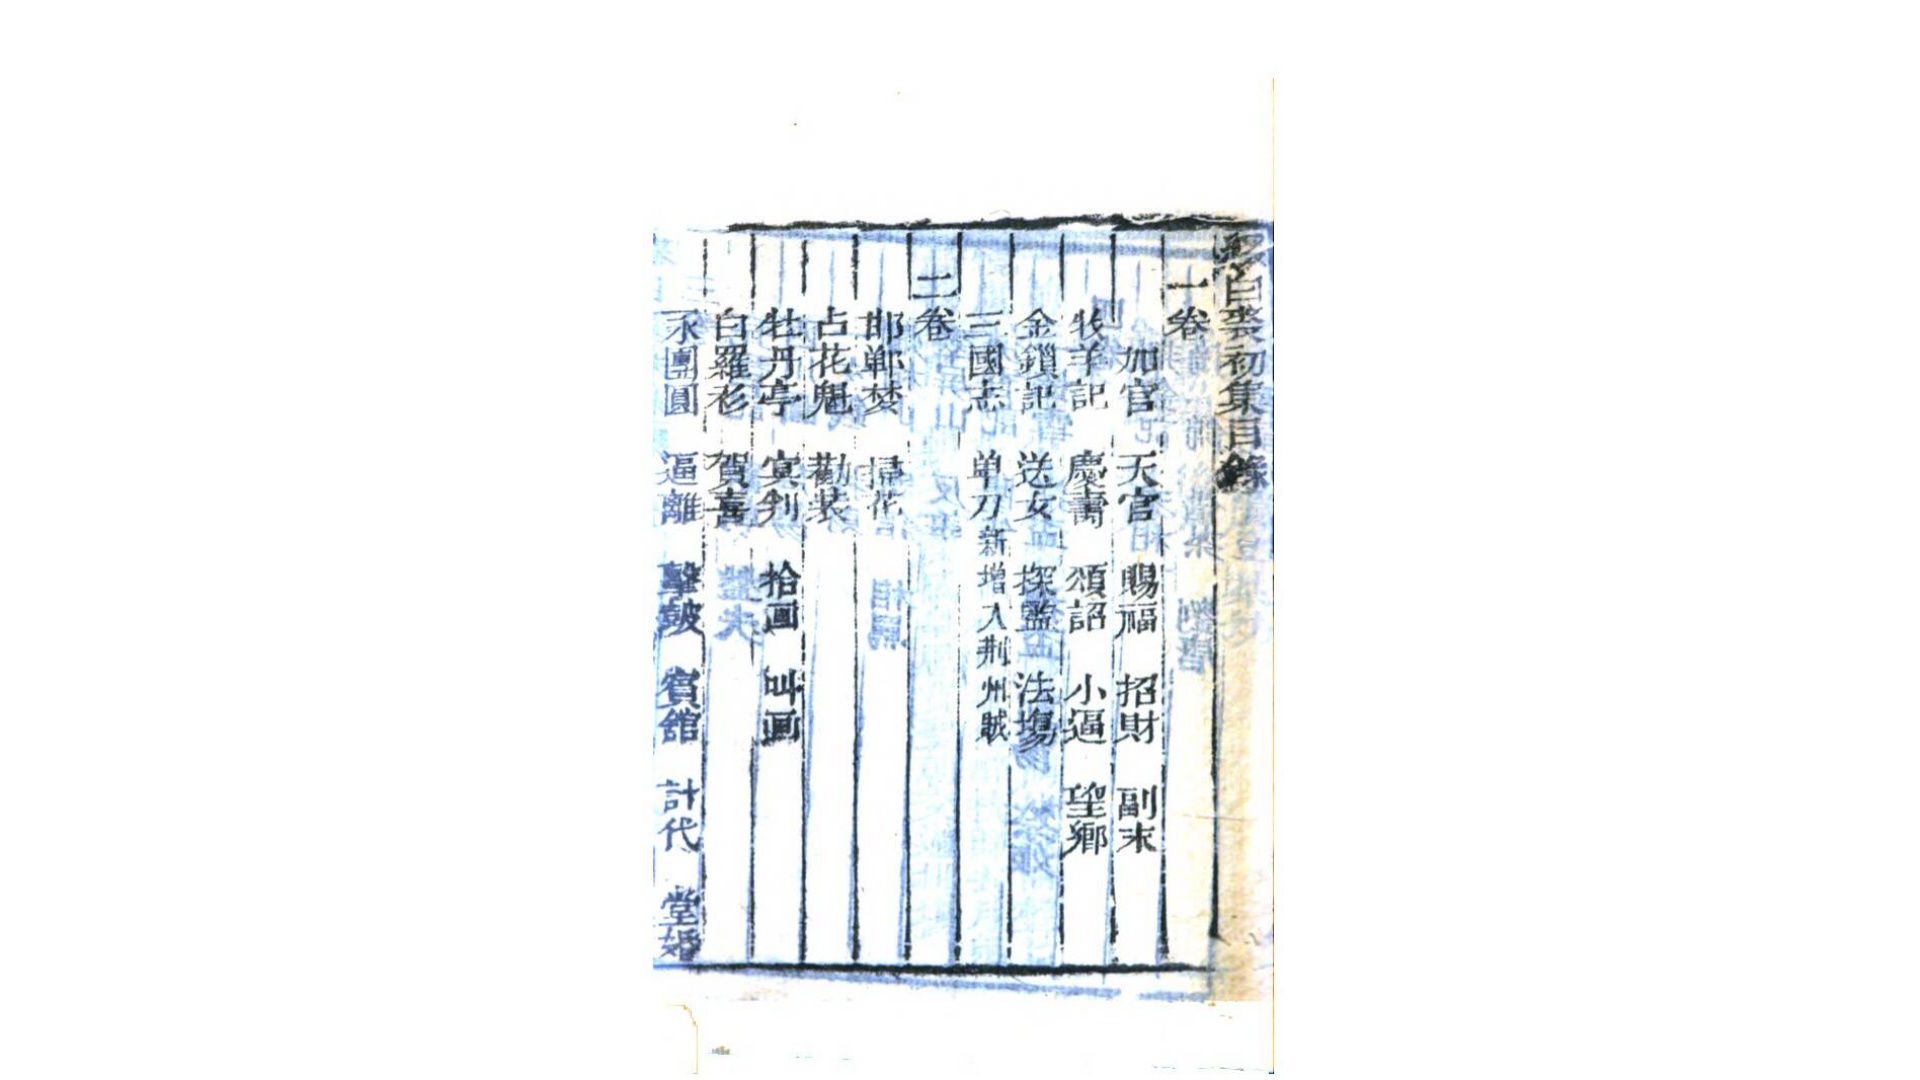 綴白裘初集目錄
一卷
加官 天官 賜福 招財 副末
牧羊記 慶壽 頒詔 小逼 望鄉
金鎖記 送女 探監 法塲
三國志 单刀 新增入荆州賊
二卷
邯鄲梦 掃花
占花魁 勸装
牡丹亭 冥判 拾画 叫画
白羅衫 賀喜
永團圓 逼離 擊鼓 賓舘 計代 堂婚